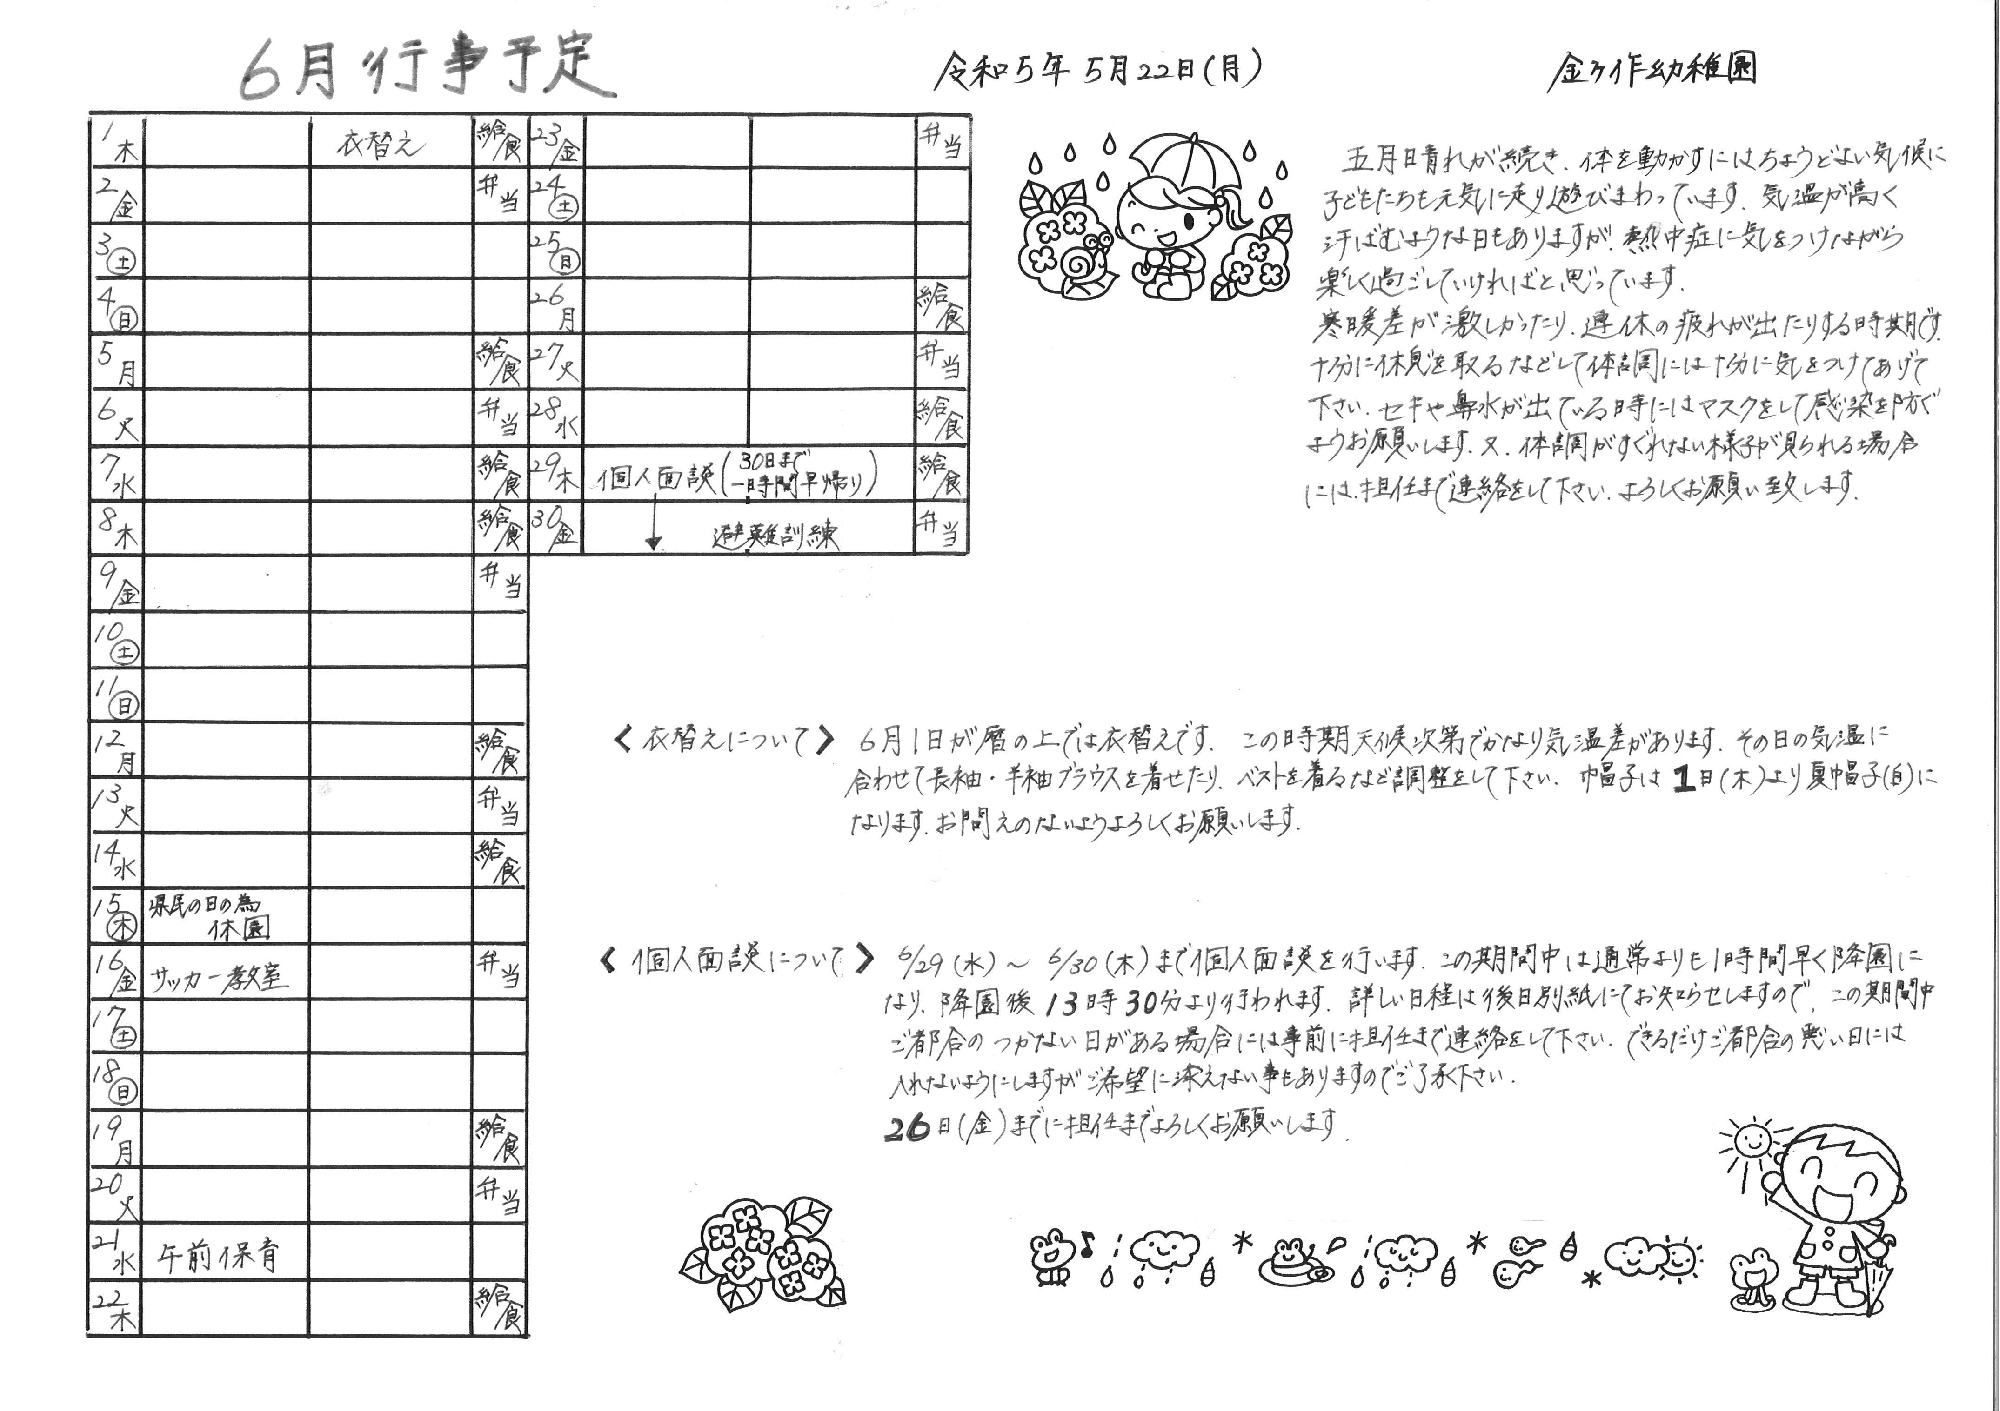 6月行事予定
令和5年 5月22日(月)
金ヶ作幼稚園
1木 衣替え 給食
2金 弁当
3土
4日
5月 給食
6火 弁当
7水 給食
8木 給食
9金 弁当
10土
11日
12月 給食
13火 弁当
14水 給食
15木 県民の日の為
休園
16金 サッカー教室 弁当
17土
18日
19月 給食
20火 弁当
21水 午前保育
22木 給食
23金 弁当
24土
25日
26月 給食
27火 弁当
28水 給食
29木 個人面談(30日まで
一時間早帰り) 給食
30金 避難訓練 弁当
五月日晴れが続き、体を動かすにはちょうどよい気候に
子どもたちも元気に走り遊びまわっています。気温が高く
汗ばむような日もありますが、熱中症に気をつけながら
楽しく過ごしていければと思っています。
寒暖差が激しかったり、連休の疲れが出たりする時期です。
十分に休息を取るなどして体調には十分に気をつけてあげて
下さい。セキや鼻水が出ている時にはマスクをして感染を防ぐ
ようお願いします。又、体調がすぐれない様子が見られる場合
には、担任まで連絡をして下さい。よろしくお願い致します。
〈衣替えについて〉 6月1日が暦の上では衣替えです。この時期天候次第でかなり気温差があります。その日の気温に
合わせて長袖・半袖ブラウスを着せたり、ベストを着るなど調整をして下さい。帽子は1日(木)より夏帽子(白)に
なります。お間えのないようよろしくお願いします。
〈個人面談について〉 6/29(水)～6/30(木)まで個人面談を行います。この期間中は通常よりも1時間早く降園に
なり、降園後13時30分より行われます。詳しい日程は後日別紙にてお知らせしますので、この期間中
ご都合のつかない日がある場合には事前に担任まで連絡をして下さい。できるだけご都合の悪い日には
入れないようにしますがご希望に添えない事もありますのでご了承下さい。
26日(金)までに担任までよろしくお願いします。